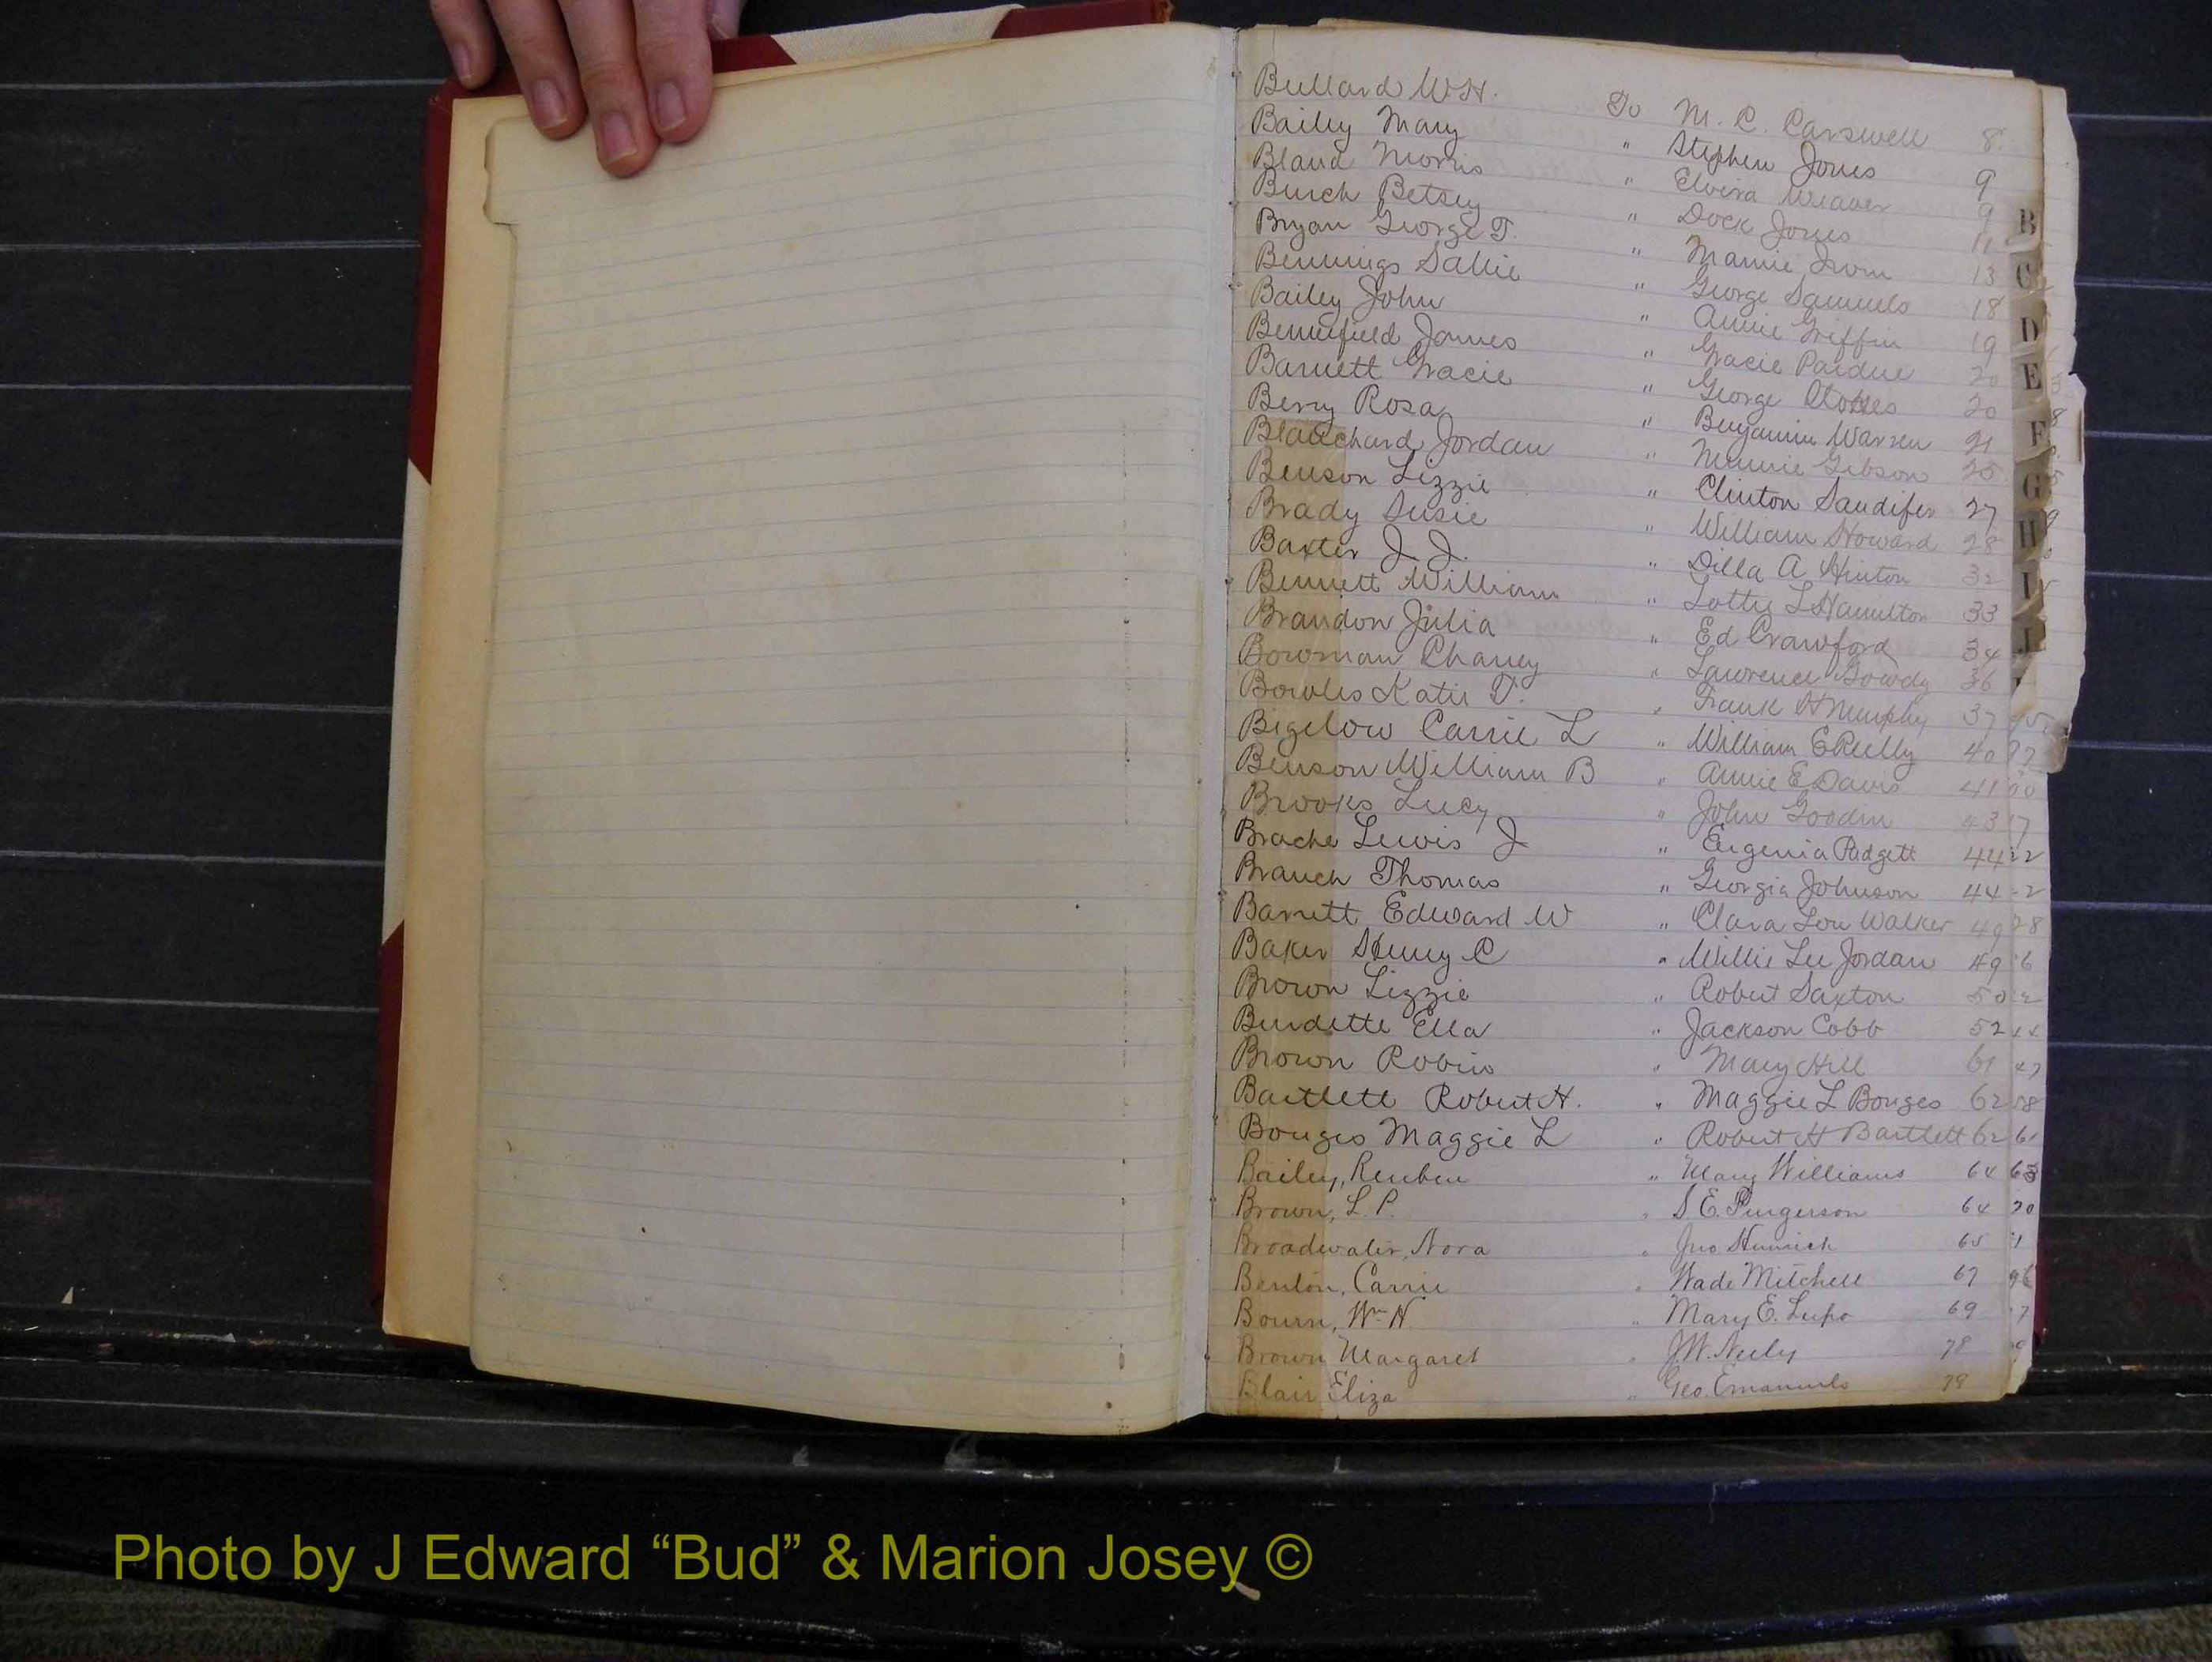 Bullard W.H. To M. C. Carswell 8
Bailey Mary " Stephen Jones 9
Bland Morris " Elvira Weaver 9
Burch Betsey " Dock Jones 11
Bryan George T. " Mamie Irvin 13
Bennings Sallie " George Samuels 18
Bailey John " Annie Griffin 19
Bennefield James " Gracie Pardue 20
Barnett Gracie " George 20
Berry Rosa " Benjamin Warren 21
Blanchard Jordan " Minnie Gibson 25
Benson Lizzie " Clinton Sandifer 27
Brady Susie " William Howard 28
Baxter J. J. " Dilla A Hinton 32
Bennett William " Lottie L Hamilton 33
Brandon Julia " Ed Crawford 34
Bowman Chaney " Lawrence Gowdy 36
Bowles Katie V. " Frank H Murphy 37
Bigelow Carrie L " William E Reilly 40
Benson William B " Annie E Davis 41
Brooks Lucy " John Goodin 43
Brache Lewis J " Eugenia Padgett 44
Branch Thomas " Georgia Johnson 44
Barrett Edward W " Clara Lou Walker 49
Baker Henry C " Willie Lee Jordan 49
Brown Lizzie " Robert Saxton 50
Burdette Ella " Jackson Cobb 52
Brown Robin " Mary Hill 61
Bartlett Robert H. " Maggie L Bouges 62
Bouges Maggie L " Robert H Bartlett 62
Bailey, Reuben " Mary Williams 64
Brown, L. P. " S. E. Purgerson 64
Broadwater, Nora " Jno 65
Benton, Carrie " Wade Mitchell 67
Bourn, Wm H. " Mary E. Lupo 69
Brown Margaret " J.W. Neely 78
Blair Eliza " Geo. Emanuels 79
B
C
D
E
F
G
H
I
J
Photo by J Edward “Bud” & Marion Josey ©